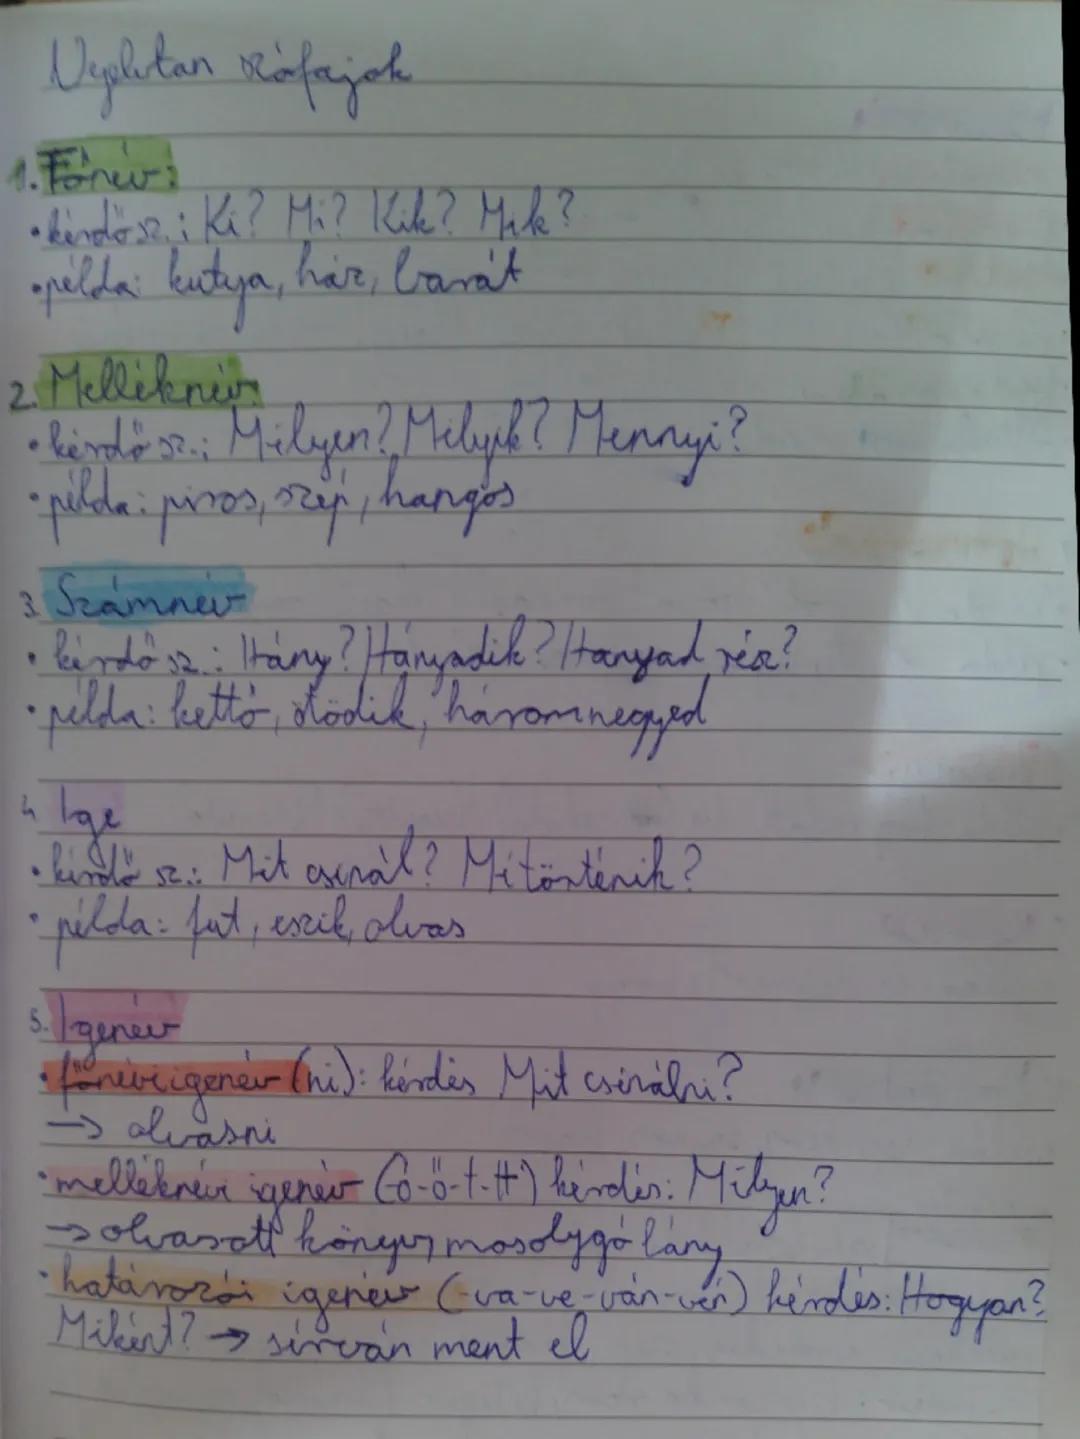 Nyelvtan szófajok
1. Főnév:
• kérdő sz.: Ki? Mi? Kik? Mik?
• példa: kutya, ház, barát
2. Melléknév:
• kérdő sz.: Milyen? Melyik? Mennyi?
• példa: piros, szép, hangos
3. Számnév
• kérdő sz.: Hány? Hányadik? Hanyad rész?
• példa: kettő, ötödik, háromnegyed
4. Ige
• kérdő sz.: Mit csinál? Mi történik?
• példa: fut, eszik, olvas
5. Igenév
• főnévi igenév (ni): kérdés Mit csinálni?
→ olvasni
• melléknévi igenév (-ó-ő-t-tt) kérdés: Milyen?
→ olvasott könyv, mosolygó lány
• határozói igenév (-va-ve-ván-vén) kérdés: Hogyan?
Miként? → sírván ment el